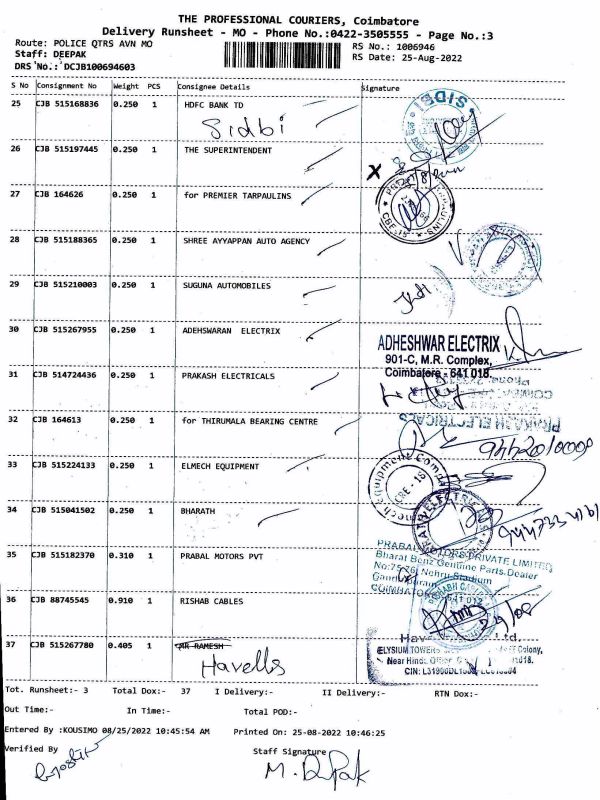 THE PROFESSIONAL COURIERS, Coimbatore
Delivery Runsheet - MO - Phone No.:0422-3505555 - Page No.:3
Route: POLICE QTRS AVN MO
RS No.: 1006946
Staff: DEEPAK
RS Date: 25-Aug-2022
DRS No.: DCJB100694603
S No Consignment No Weight PCS Consignee Details Signature
25 CJB 515168836 0.250 1 HDFC BANK TD
Sidbi
SIDBI
26 CJB 515197445 0.250 1 THE SUPERINTENDENT
X
27 CJB 164626 0.250 1 for PREMIER TARPAULINS
28 CJB 515188365 0.250 1 SHREE AYYAPPAN AUTO AGENCY
29 CJB 515210003 0.250 1 SUGUNA AUTOMOBILES
30 CJB 515267955 0.250 1 ADEHSWARAN ELECTRIX
ADHESHWAR ELECTRIX
901-C, M.R. Complex,
Coimbatore - 641 018.
31 CJB 514724436 0.250 1 PRAKASH ELECTRICALS
PRAKASH ELECTRICALS
32 CJB 164613 0.250 1 for THIRUMALA BEARING CENTRE
33 CJB 515224133 0.250 1 ELMECH EQUIPMENT
Equipment CBE - 18
34 CJB 515041502 0.250 1 BHARATH
35 CJB 515182370 0.310 1 PRABAL MOTORS PVT
PRABAL MOTORS PRIVATE LIMITED
Bharat Benz Genuine Parts Dealer
No:75-76, Nehru Stadium
COIMBATORE - 641 012
36 CJB 88745545 0.910 1 RISHAB CABLES
37 CJB 515267780 0.405 1 AR RAMESH
Havells
ELYSIUM TOWERS Colony,
Near Hindu Office
Tot. Runsheet:- 3 Total Dox:- 37 I Delivery:- II Delivery:- RTN Dox:-
Out Time:- In Time:- Total POD:-
Entered By :KOUSIMO 08/25/2022 10:45:54 AM Printed On: 25-08-2022 10:46:25
Verified By Staff Signature
M. Deepak